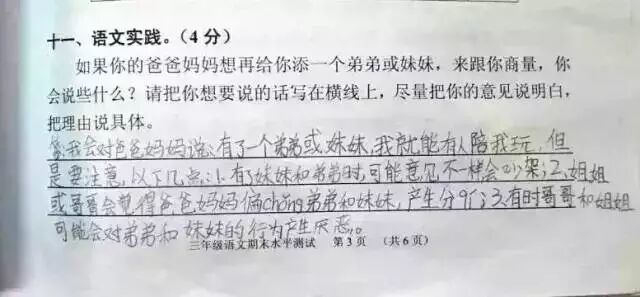 十一、语文实践。(4分)
如果你的爸爸妈妈想再给你添一个弟弟或妹妹，来跟你商量，你
会说些什么？请把你想要说的话写在横线上，尽量把你的意见说明白，
把理由说具体。
我会对爸爸妈妈说：有了一个弟弟或妹妹，我就能有人陪我玩，但
是要注意，以下几点：1.有了妹妹和弟弟时，可能意见不一样会吵架；2.姐姐
或哥哥会觉得爸爸妈妈偏chǒng弟弟和妹妹，产生分歧；3.有时哥哥和姐姐
可能会对弟弟和妹妹的行为产生厌恶。
三年级语文期末水平测试 第3页 (共6页)